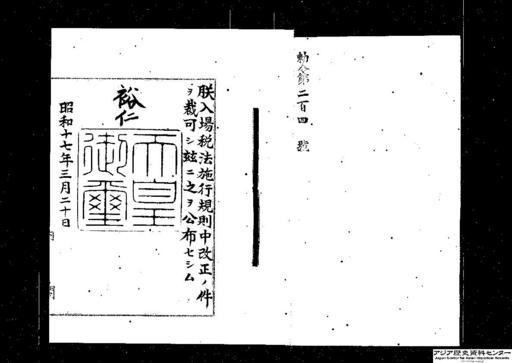 勅令第二百四號
朕入場税法施行規則中改正ノ件
ヲ裁可シ茲ニ之ヲ公布セシム
裕仁
天皇御璽
昭和十七年三月二十日
内閣
アジア歴史資料センター
Japan Center for Asian Historical Records